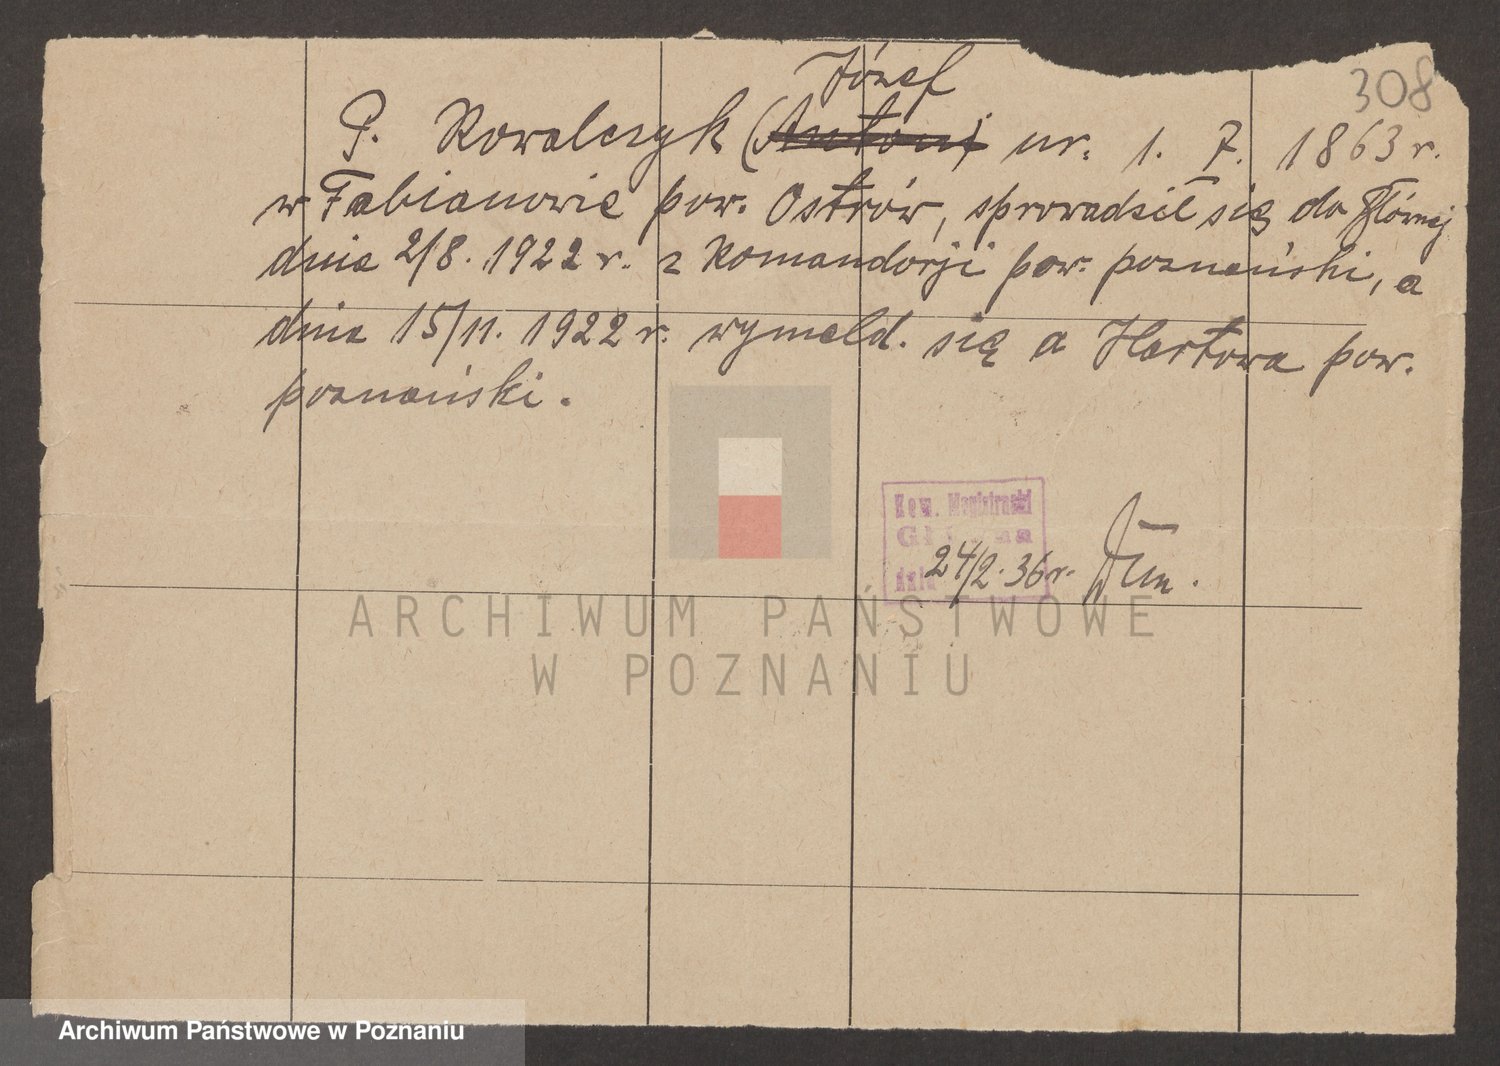 308
Józef
P. Kowalczyk (Antoni) ur. 1. 7. 1863 r.
w Fabianowie pow. Ostrów, sprowadził się do Głównej
dnia 2/8. 1922 r. z Komandorji pow. poznański, a
dnia 15/11. 1922 r. wymeld. się a Hartowa pow.
poznański.
Kom. Magistracki
Główna
dnia 24/2. 36 r.
ARCHIWUM PAŃSTWOWE
W POZNANIU
Archiwum Państwowe w Poznaniu